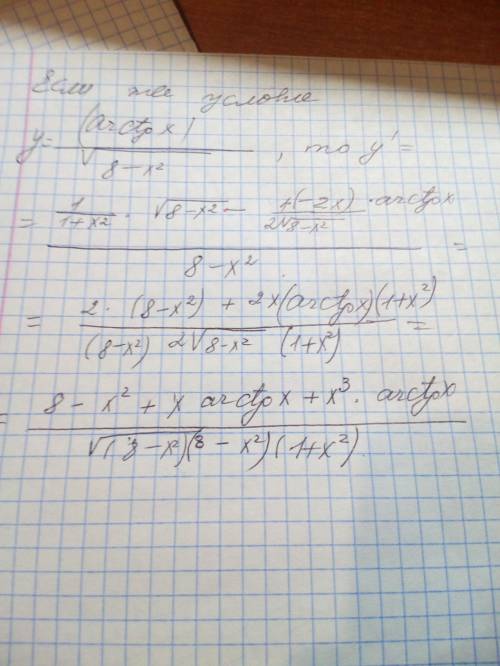 Если же условие
y = (arctg x) / √(8 - x²) , то y' =
= (1/(1+x²) · √(8-x²) - 1(-2x)/(2√(8-x²)) · arctg x) / (8 - x²) =
= (2 · (8-x²) + 2x(arctg x)(1+x²)) / ((8-x²) 2√(8-x²) (1+x²)) =
= (8 - x² + x arctg x + x³ · arctg x) / (√(8-x²)(8-x²)(1+x²))